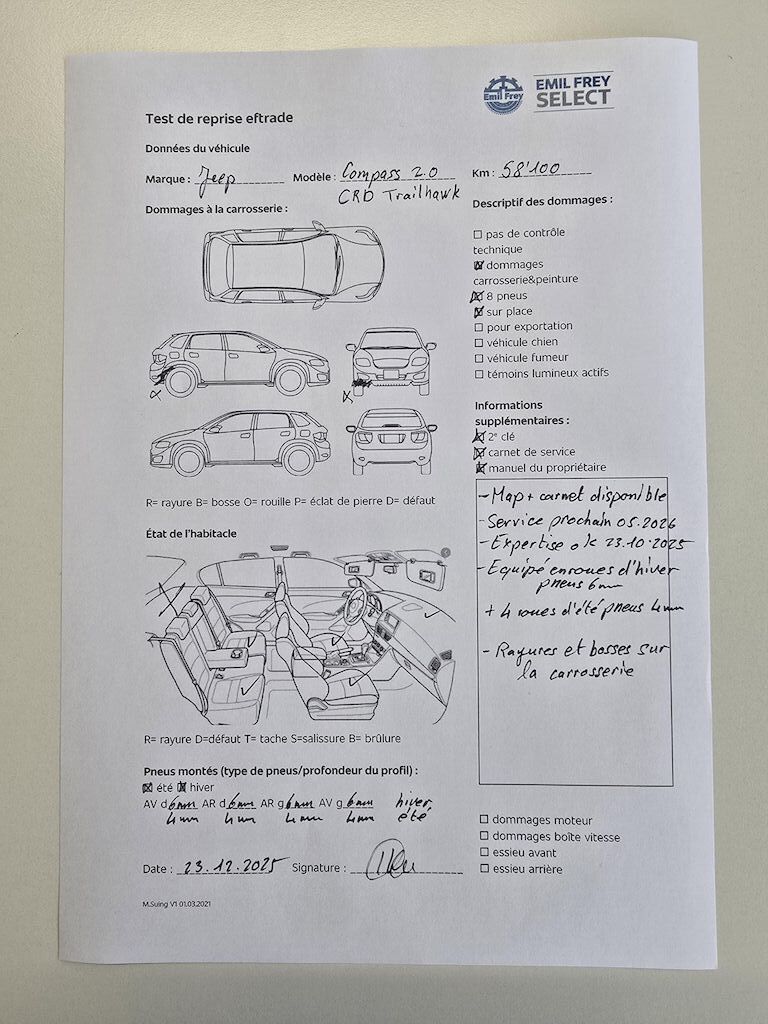 Emil Frey
EMIL FREY
SELECT
Test de reprise eftrade
Données du véhicule
Marque : Jeep Modèle : Compass 2.0 Km : 58'100
CRD Trailhawk
Dommages à la carrosserie :
Descriptif des dommages :
☐ pas de contrôle
technique
☒ dommages
carrosserie&peinture
☒ 8 pneus
☒ sur place
☐ pour exportation
☐ véhicule chien
☐ véhicule fumeur
☐ témoins lumineux actifs
R= rayure B= bosse O= rouille P= éclat de pierre D= défaut
Informations
supplémentaires :
☒ 2ᵉ clé
☒ carnet de service
☒ manuel du propriétaire
- Map + carnet disponible
- Service prochain 05.2026
- Expertise ok 23.10.2025
- Equipé en roues d'hiver
pneus 6mm
+ 4 roues d'été pneus 4mm
- Rayures et bosses sur
la carrosserie
État de l'habitacle
R= rayure D=défaut T= tache S=salissure B= brûlure
Pneus montés (type de pneus/profondeur du profil) :
☒ été ☒ hiver
AV d 6mm AR d 6mm AR g 6mm AV g 6mm hiver
4mm 4mm 4mm 4mm été
☐ dommages moteur
☐ dommages boîte vitesse
☐ essieu avant
☐ essieu arrière
Date : 23.12.2025 Signature :
M.Suing V1 01.03.2021